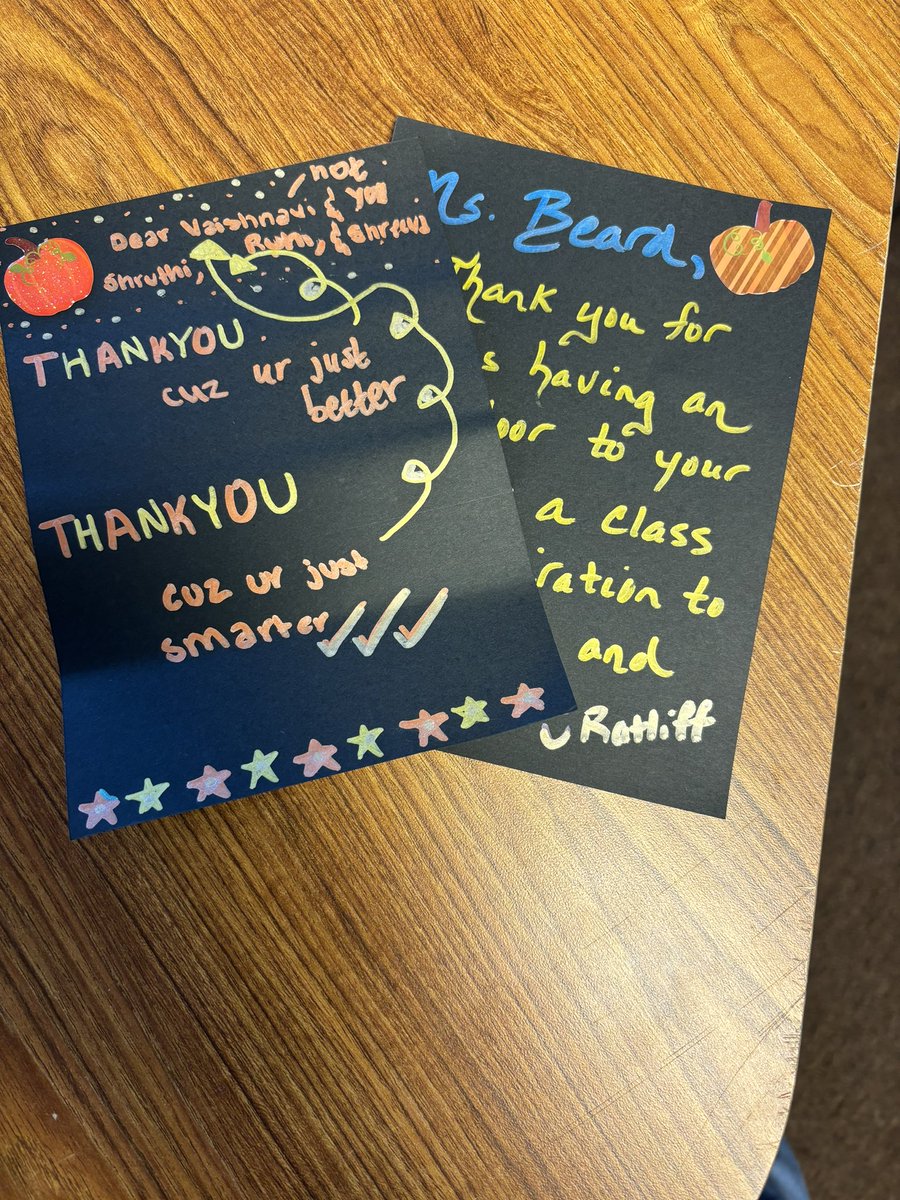 not
Dear Vaishnavi & you
Shruthi, Ruth, & Shreeya
THANKYOU
cuz ur just
better
THANKYOU
cuz ur just
smarter
Ms. Beard,
Thank you for
s having an
oor to your
a class
iration to
and
Ratliff